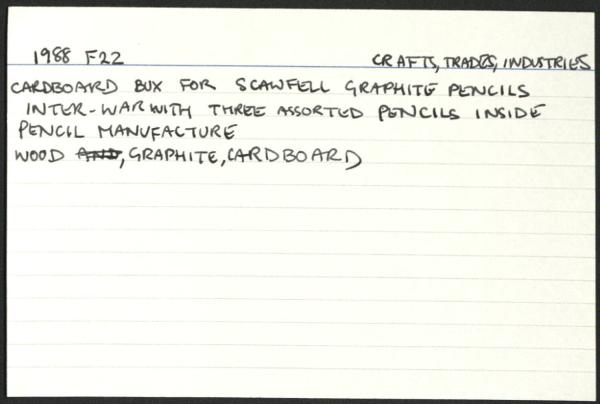 1988 F22 CRAFTS, TRADES, INDUSTRIES
CARDBOARD BOX FOR SCAWFELL GRAPHITE PENCILS
INTER-WAR WITH THREE ASSORTED PENCILS INSIDE
PENCIL MANUFACTURE
WOOD AND, GRAPHITE, CARDBOARD